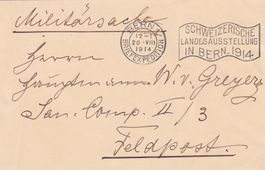 Militärsache
BERN 1
12-1
20 VIII
1914
BRIEFEXPEDITION
SCHWEIZERISCHE
LANDESAUSSTELLUNG
IN BERN. 1914
Herrn
Hauptmann W. v. Greyerz
San. Comp. II/3
Feldpost.